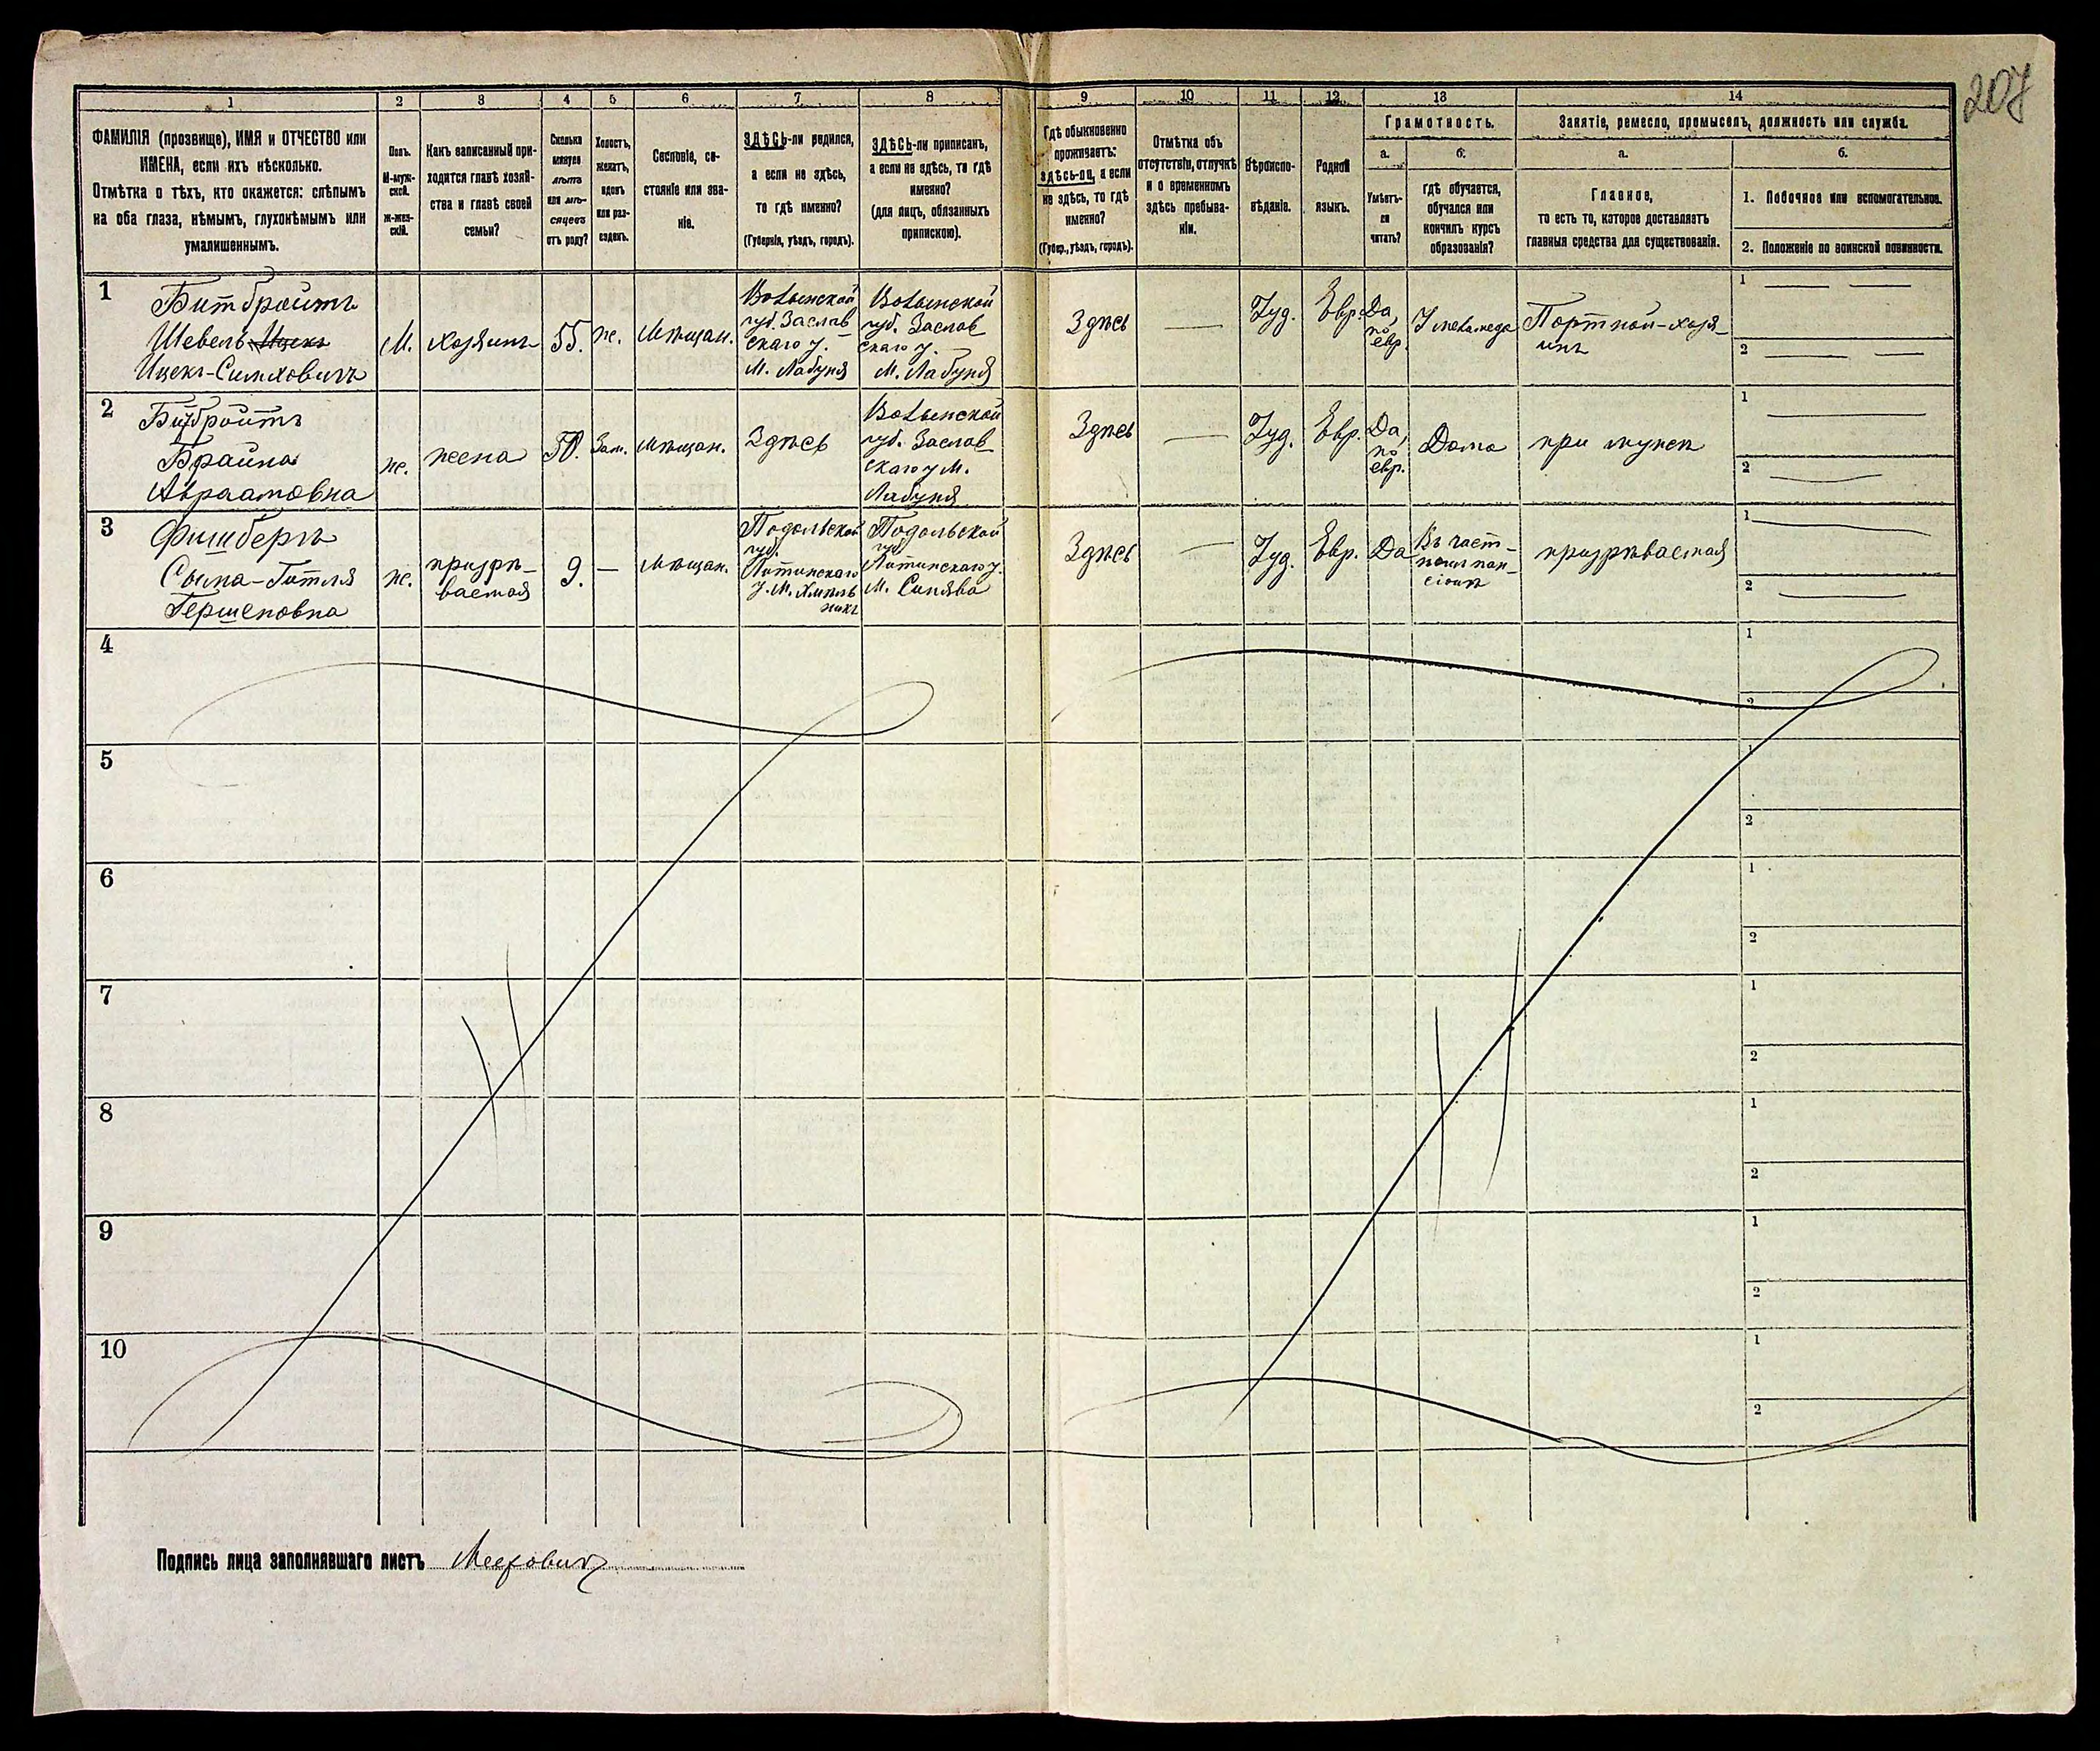 207
1 2 3 4 5 6 7 8 9 10 11 12 13 14
ФАМИЛІЯ (прозвище), ИМЯ и ОТЧЕСТВО или
ИМЕНА, если ихъ нѣсколько.
Отмѣтка о тѣхъ, кто окажется: слѣпымъ
на оба глаза, нѣмымъ, глухонѣмымъ или
умалишеннымъ.
Полъ.
М-муж-
ской.
Ж-жен-
скій.
Какъ записанный при-
ходится главѣ хозяй-
ства и главѣ своей
семьи?
Сколько
минуло
лѣтъ
или мѣ-
сяцевъ
отъ роду?
Холостъ,
женатъ,
вдовъ
или раз-
веденъ.
Сословіе, со-
стояніе или зва-
ніе.
ЗДѢСЬ-ли родился,
а если не здѣсь,
то гдѣ именно?
(Губернія, уѣздъ, городъ).
ЗДѢСЬ-ли приписанъ,
а если не здѣсь, то гдѣ
именно?
(для лицъ, обязанныхъ
припискою).
Гдѣ обыкновенно
проживаетъ:
здѣсь-ли, а если
не здѣсь, то гдѣ
именно?
(Губер., уѣздъ, городъ).
Отмѣтка объ
отсутствіи, отлучкѣ
и о временномъ
здѣсь пребыва-
ніи.
Вѣроиспо-
вѣданіе.
Родной
языкъ.
Грамотность.
а.
Умѣетъ-
ли
читать?
б.
гдѣ обучается,
обучался или
кончилъ курсъ
образованія?
Занятіе, ремесло, промыселъ, должность или служба.
а.
Главное,
то есть то, которое доставляетъ
главныя средства для существованія.
б.
1. Побочное или вспомогательное.
2. Положеніе по воинской повинности.
1
Битбройтъ
Шевель Ицекъ
Ицекъ-Симховичъ
М.
хозяинъ
55.
ж.
Мѣщан.
Волынской
губ. Заслав
скаго у.
М. Лабунь
Волынской
губ. Заслав
скаго у.
М. Лабунь
Здѣсь
Іуд.
Евр.
Да,
по
евр.
У меламеда
Портной-хозя-
инъ
1
2
2
Битбройтъ
Брайна
Авраамовна
ж.
жена
50.
Зам.
Мѣщан.
Здѣсь
Волынской
губ. Заслав
скаго у М.
Лабунь
Здѣсь
Іуд.
Евр.
Да,
по
евр.
Дома
при мужѣ
1
2
3
Фишберъ
Гитля
Гершеновна
ж.
призрѣ-
ваемая
9.
Мѣщан.
Подольской
губ.
Литинскаго
у. М. Хмѣль
никъ
Подольской
губ
Литинскаго у.
М. Синява
Здѣсь
Іуд.
Евр.
Да
Въ част-
номъ пан-
сіонѣ
призрѣваемая
1
2
4
1
2
5
1
2
6
1
2
7
1
2
8
1
2
9
1
2
10
1
2
Подпись лица заполнявшаго листъ